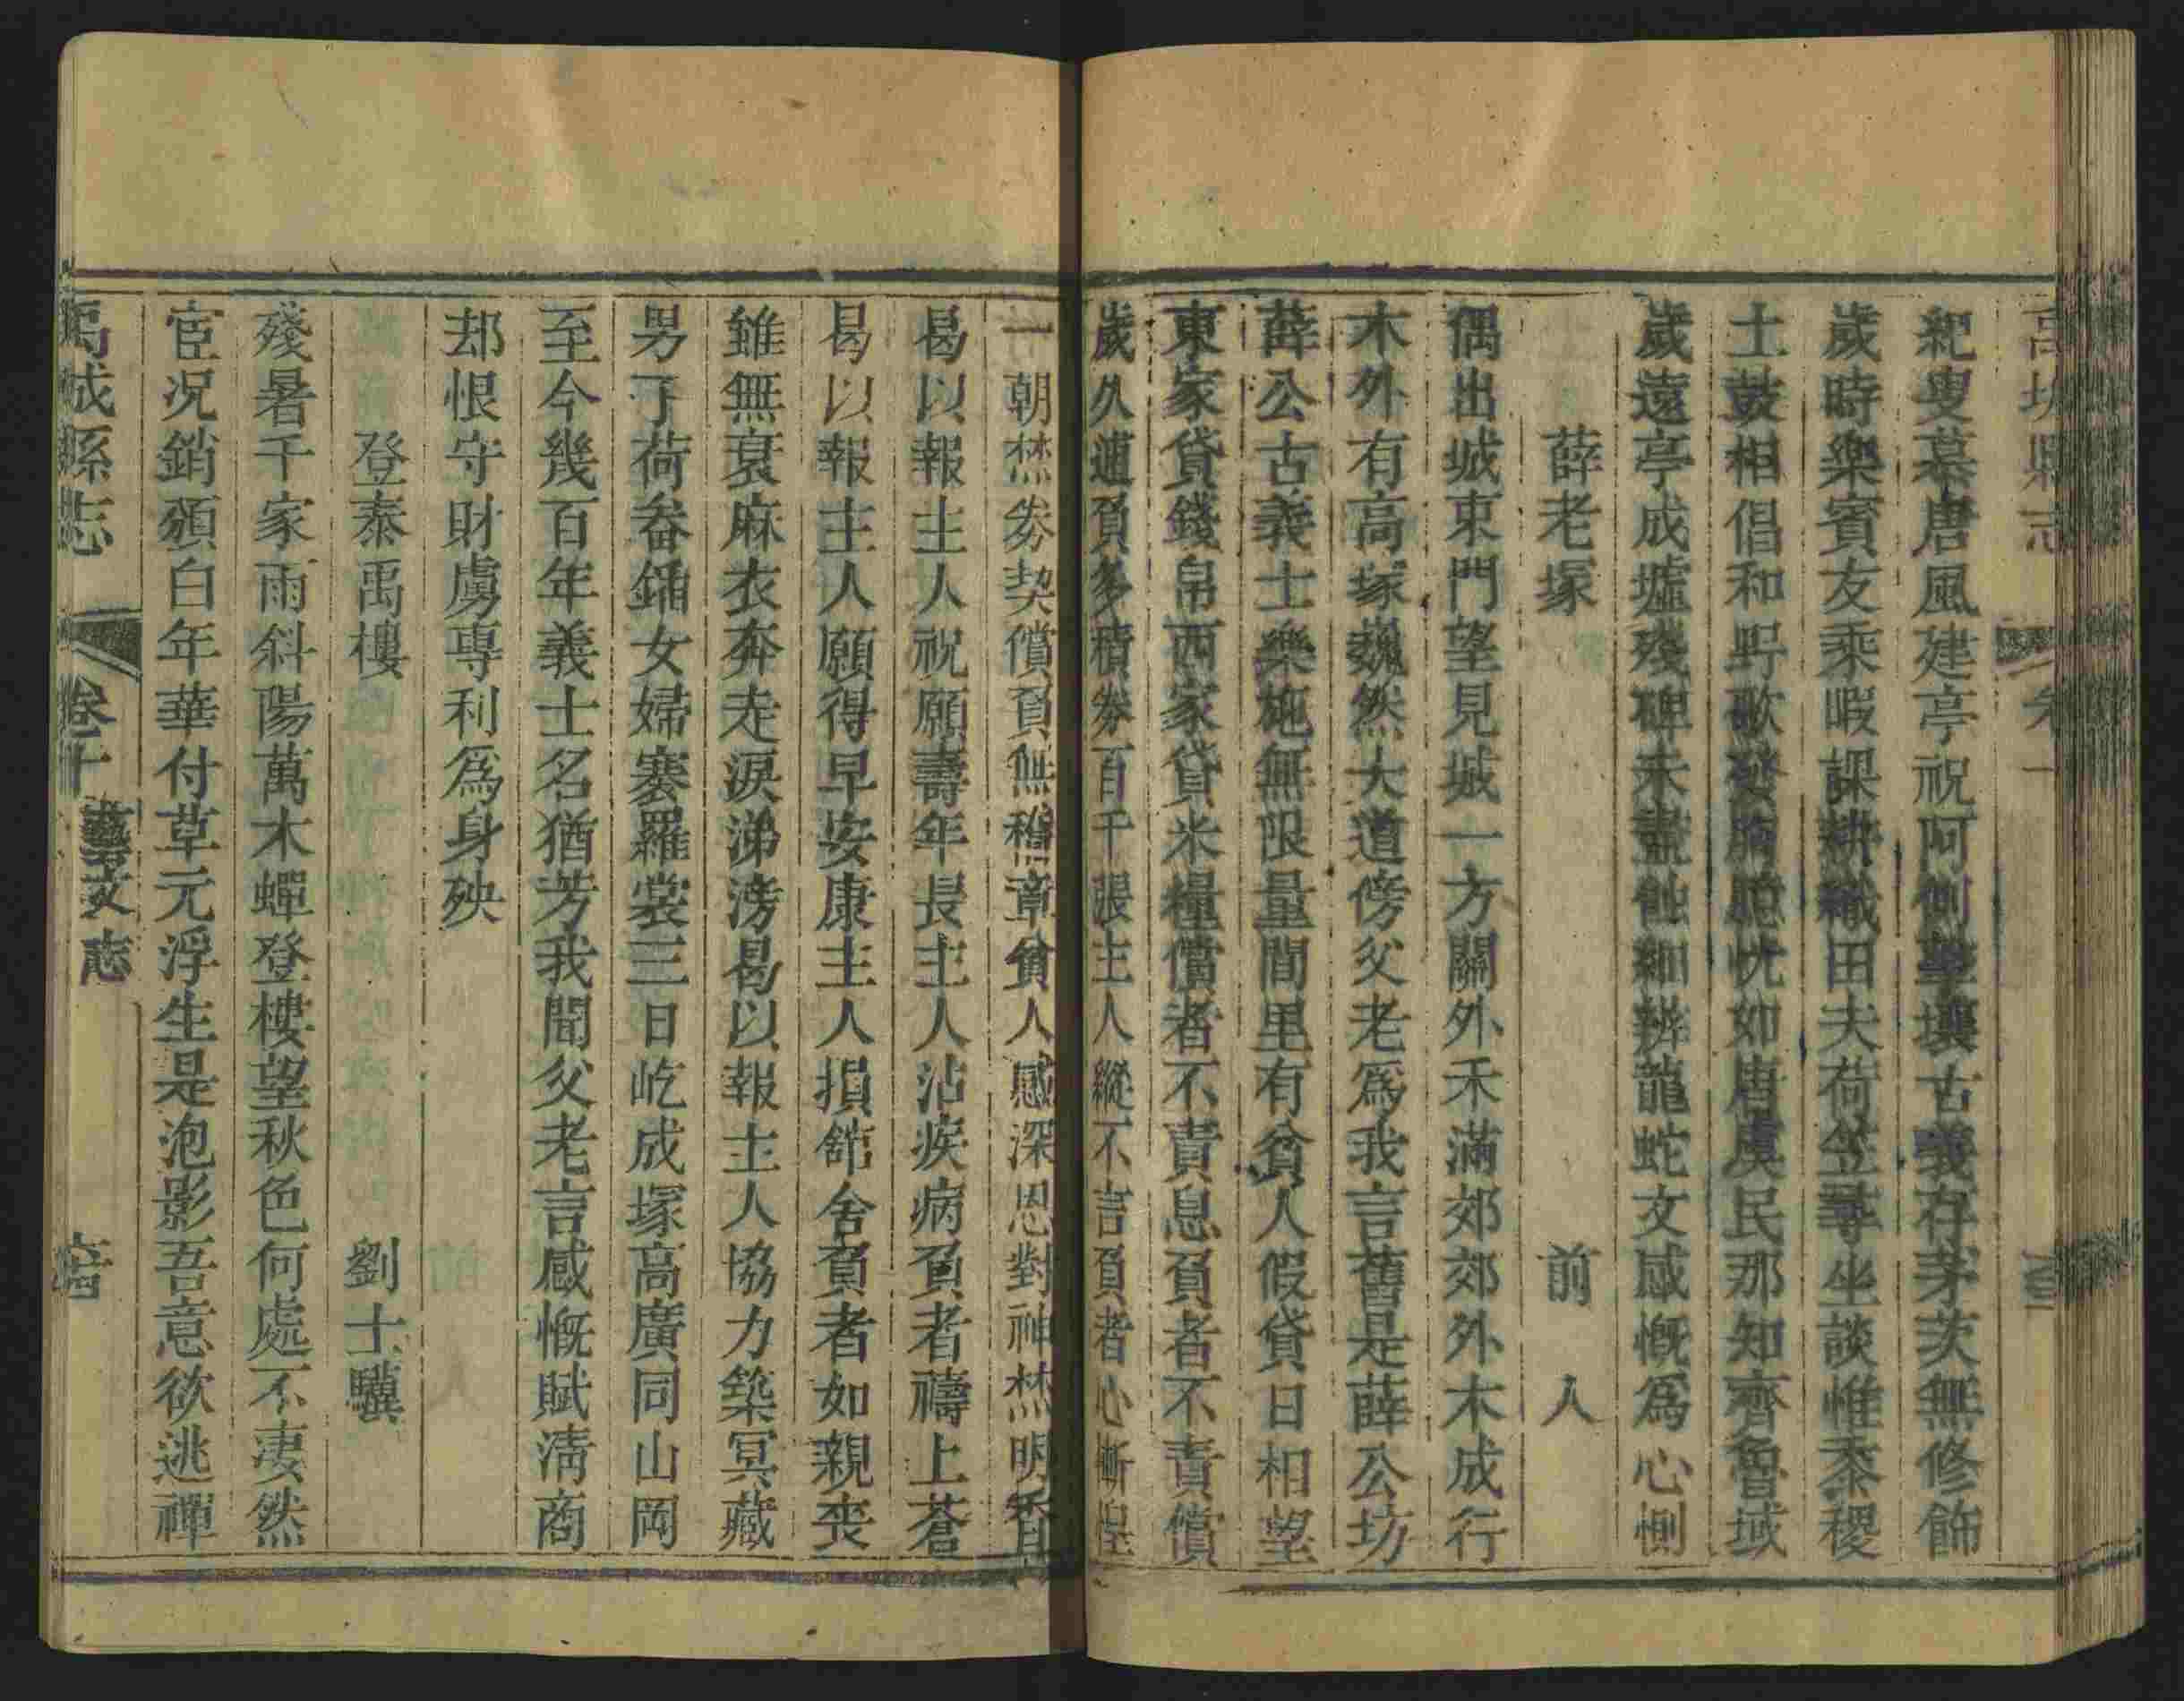 紀叟慕唐風建亭祝阿側擊壤古義存茅茨無修飾
歲時樂賓友乘暇課耕織田夫荷笠尋坐談惟黍稷
土鼓相倡和野歌發胸臆恍如唐虞民那知齊魯域
歲遠亭成墟殘碑未盡蝕細辨龍蛇文感慨為心惻
薛老塚 前人
偶出城東門望見城一方關外禾滿郊郊外木成行
木外有高塚巍然大道傍父老爲我言舊是薛公坊
薛公古義士樂施無限量閭里有貧人假貸日相望
東家貸錢帛西家貸米糧償者不責息負者不責償
歲久逋負多積券百千張主人縱不言負者心慚惶
一朝焚券契償負無稽章貧人感深恩對神焚明香
曷以報主人祝願壽年長主人沾疾病負者禱上蒼
曷以報主人願得早安康主人損舘舍負者如親喪
雖無衰麻衣奔走淚涕滂曷以報主人協力築冥藏
男丁荷畚鍤女婦褰羅裳三日屹成塚高廣同山岡
至今幾百年義士名猶芳我聞父老言感慨賦淸商
却恨守財虜專利爲身殃
登泰禹樓 劉士驥
殘暑千家雨斜陽萬木蟬登樓望秋色何處不凄然
宦况銷頒白年華付草元浮生是泡影吾意欲逃禪
禹城縣志 卷十 藝文志